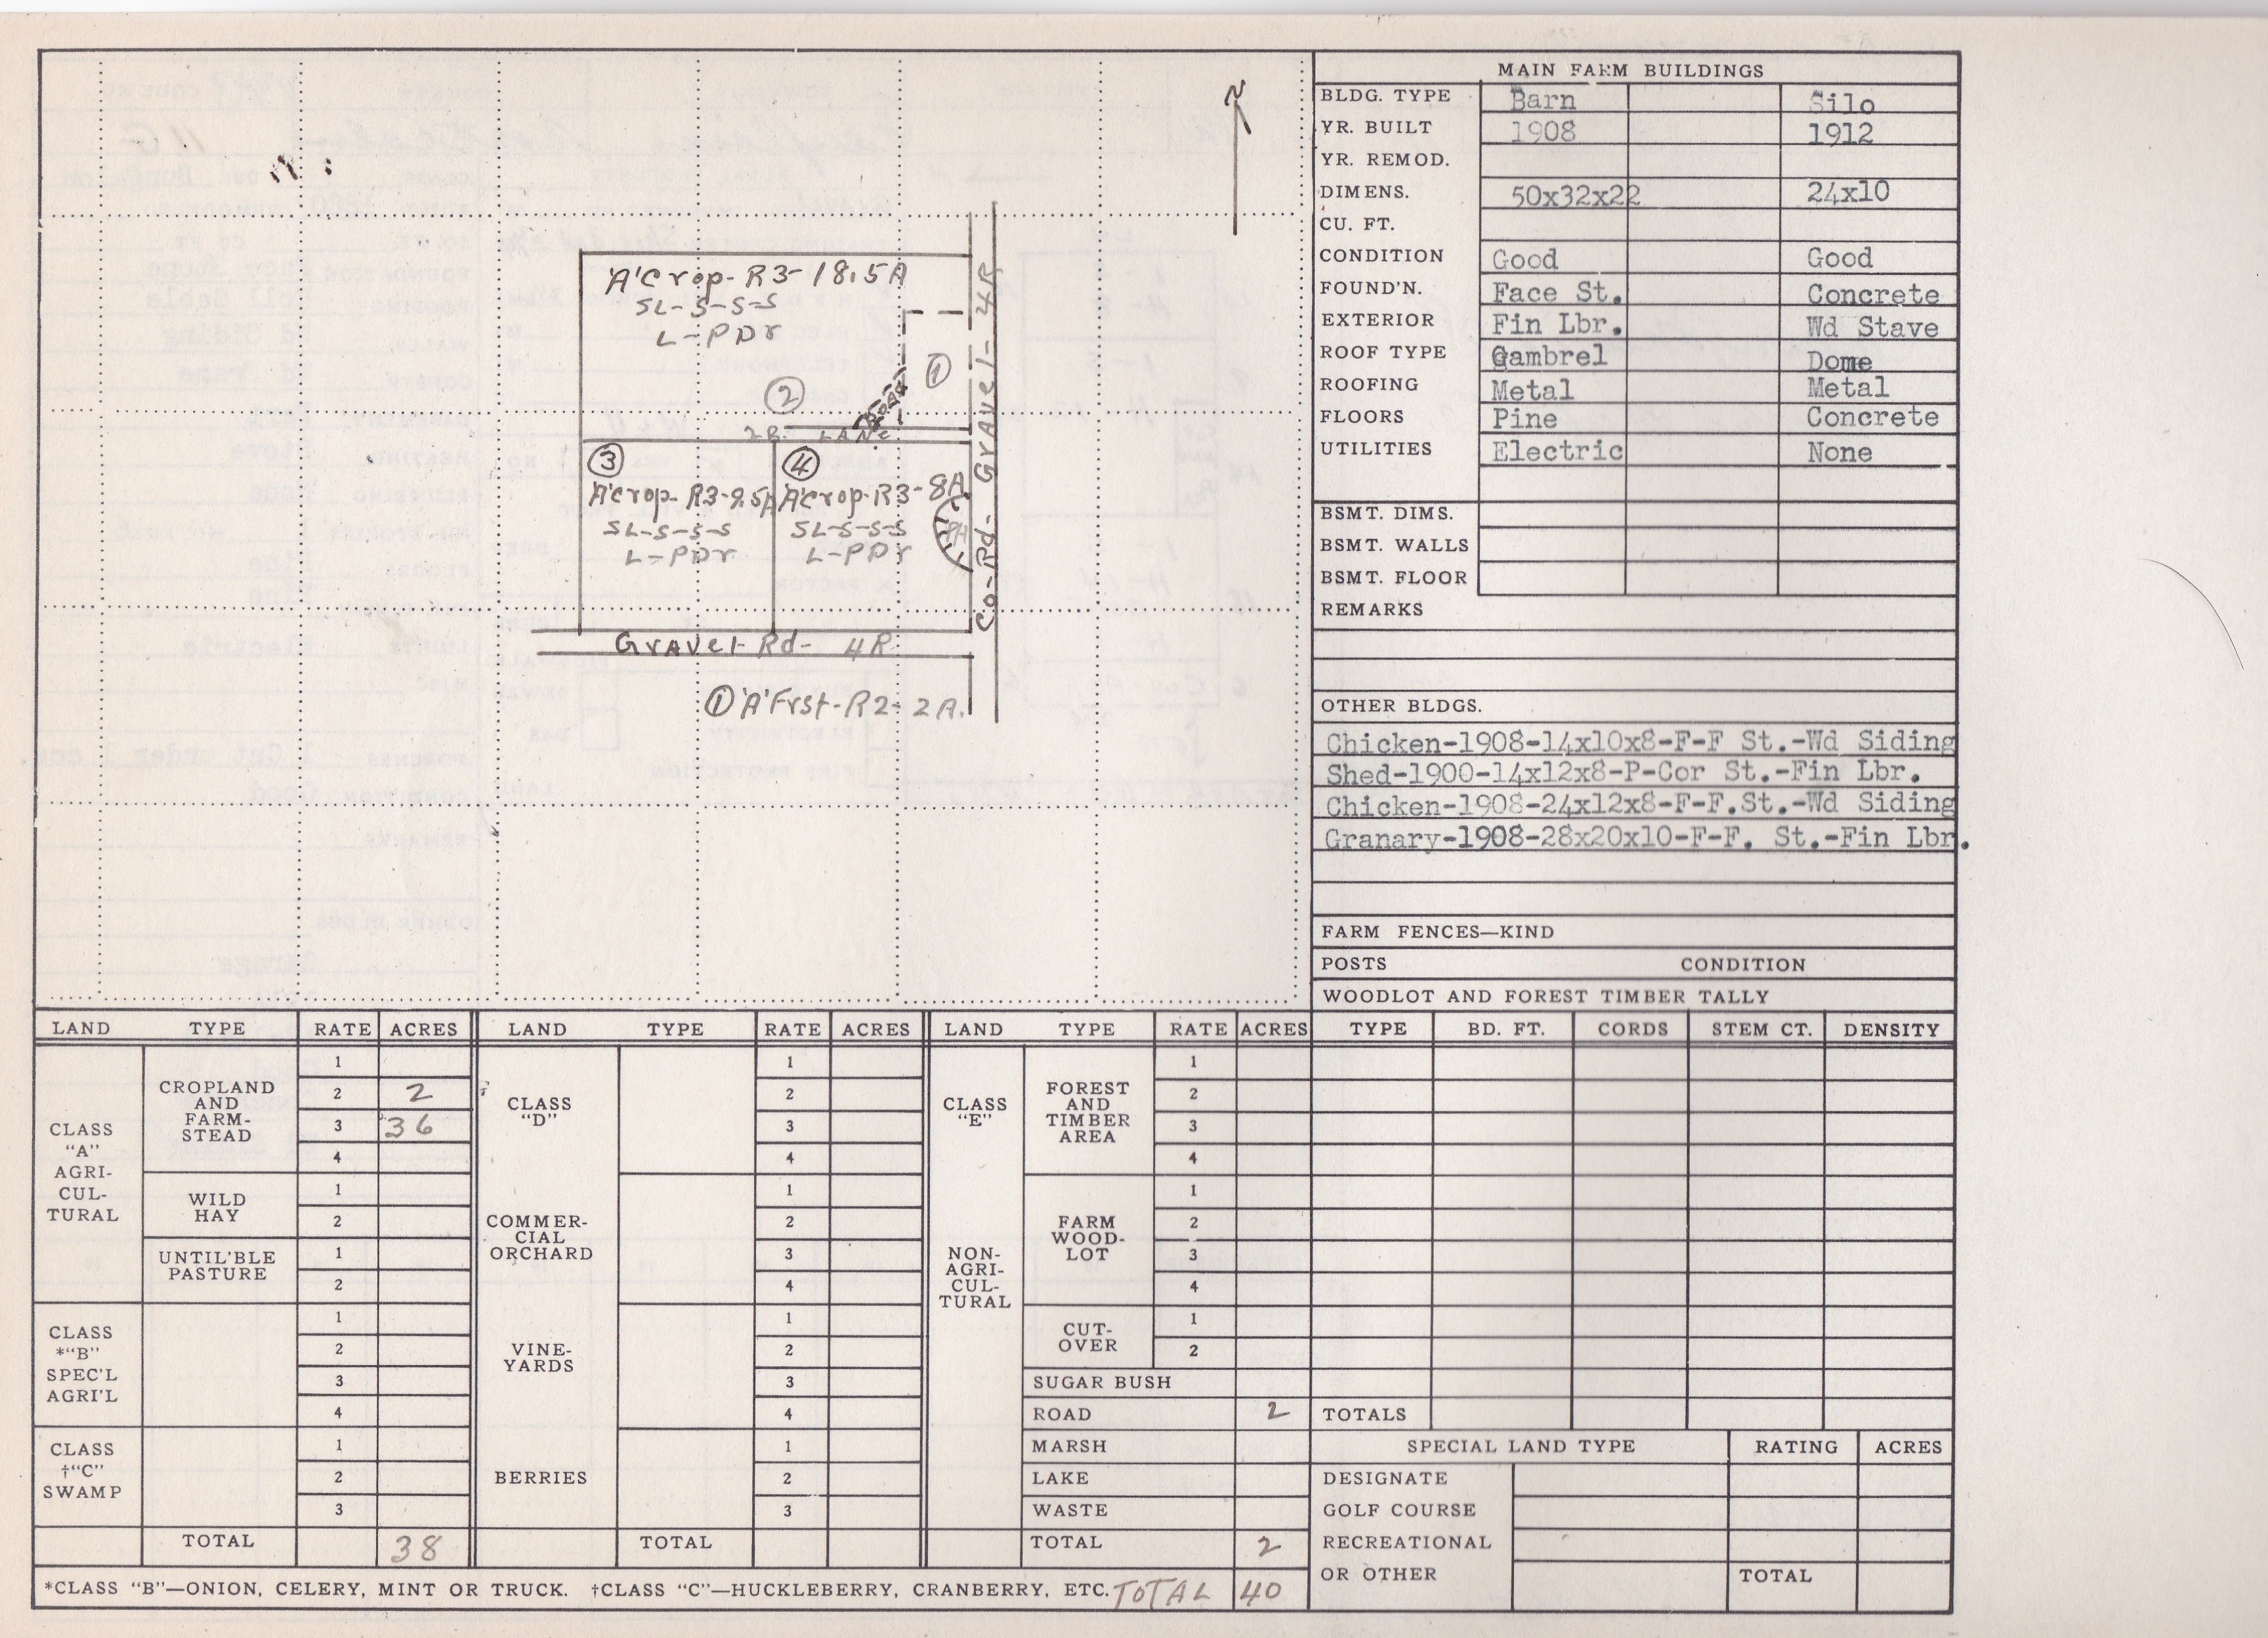 N
A'Crop-R3-18.5A
SL-S-S-S
L-PDr
①
②
2R. LANE
Co-Rd- Gravel- 4R
③
④
A'Crop-R3-9.5A
A'Crop-R3-8A
SL-S-S-S
SL-S-S-S
L-PDr
L-PDr
Gravel-Rd- 4R
① 'A' Frst-R2-2A.
MAIN FARM BUILDINGS
BLDG. TYPE Barn Silo
YR. BUILT 1908 1912
YR. REMOD.
DIMENS. 50x32x22 24x10
CU. FT.
CONDITION Good Good
FOUND'N. Face St. Concrete
EXTERIOR Fin Lbr. Wd Stave
ROOF TYPE Gambrel Dome
ROOFING Metal Metal
FLOORS Pine Concrete
UTILITIES Electric None
BSMT. DIMS.
BSMT. WALLS
BSMT. FLOOR
REMARKS
OTHER BLDGS.
Chicken-1908-14x10x8-F-F St.-Wd Siding
Shed-1900-14x12x8-P-Cor St.-Fin Lbr.
Chicken-1908-24x12x8-F-F.St.-Wd Siding
Granary-1908-28x20x10-F-F. St.-Fin Lbr.
FARM FENCES—KIND
POSTS CONDITION
WOODLOT AND FOREST TIMBER TALLY
TYPE BD. FT. CORDS STEM CT. DENSITY
TOTALS
SPECIAL LAND TYPE RATING ACRES
DESIGNATE
GOLF COURSE
RECREATIONAL
OR OTHER TOTAL
LAND TYPE RATE ACRES
CLASS
"A"
AGRI-
CUL-
TURAL
CROPLAND
AND
FARM-
STEAD
1
2 2
3 36
4
WILD
HAY
1
2
UNTIL'BLE
PASTURE
1
2
CLASS
*"B"
SPEC'L
AGRI'L
1
2
3
4
CLASS
†"C"
SWAMP
1
2
3
TOTAL 38
LAND TYPE RATE ACRES
CLASS
"D"
1
2
3
4
COMMER-
CIAL
ORCHARD
1
2
3
4
VINE-
YARDS
1
2
3
4
BERRIES
1
2
3
TOTAL
LAND TYPE RATE ACRES
CLASS
"E"
NON-
AGRI-
CUL-
TURAL
FOREST
AND
TIMBER
AREA
1
2
3
4
FARM
WOOD-
LOT
1
2
3
4
CUT-
OVER
1
2
SUGAR BUSH
ROAD 2
MARSH
LAKE
WASTE
TOTAL 2
*CLASS "B"—ONION, CELERY, MINT OR TRUCK. †CLASS "C"—HUCKLEBERRY, CRANBERRY, ETC. TOTAL 40